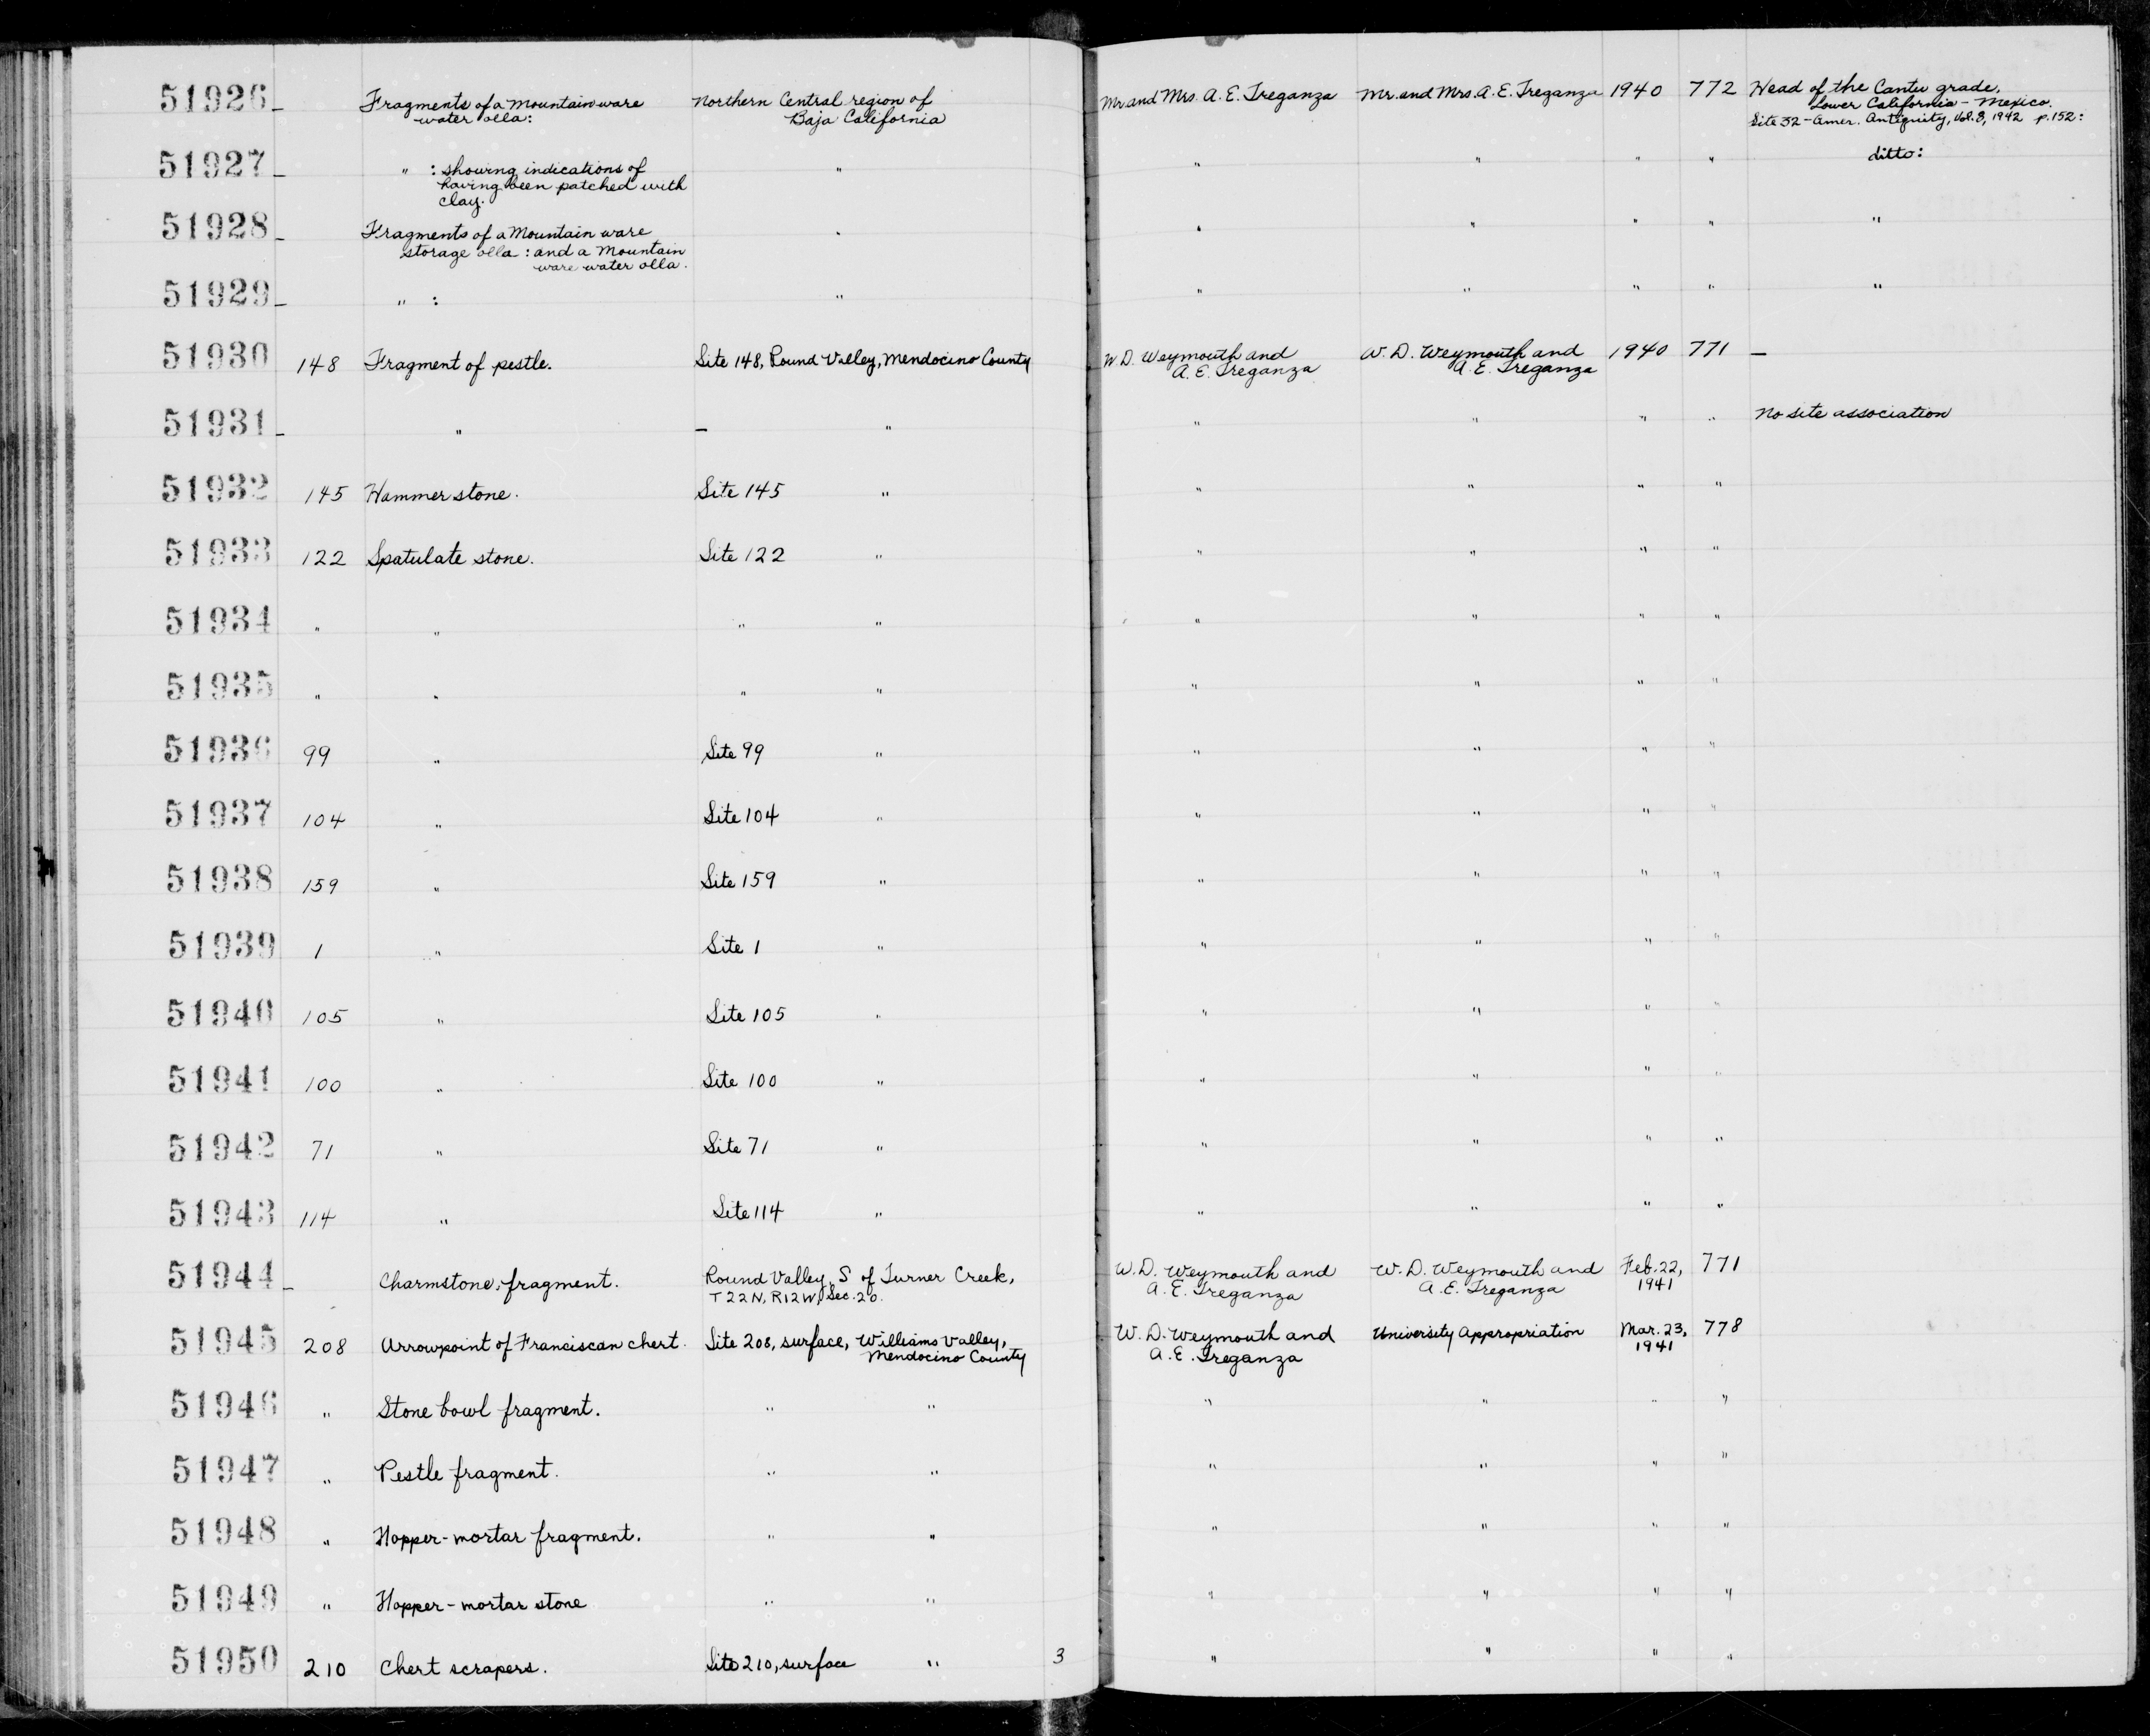 51926 – Fragments of a Mountain ware Northern Central region of Mr. and Mrs. A. E. Treganza Mr. and Mrs. A. E. Treganza 1940 772 Head of the Cantu grade,
water olla: Baja California Lower California – Mexico.
Site 32 – Amer. Antiquity, Vol. 8, 1942 p. 152:
51927 – " : showing indications of " " " " " ditto:
having been patched with
clay.
51928 – Fragments of a Mountain ware " " " " " "
storage olla : and a Mountain
ware water olla.
51929 – " : " " " " " "
51930 148 Fragment of pestle. Site 148, Round Valley, Mendocino County W. D. Weymouth and W. D. Weymouth and 1940 771 –
A. E. Treganza A. E. Treganza
51931 – " – " " " " " No site association
51932 145 Hammerstone. Site 145 " " " " "
51933 122 Spatulate stone. Site 122 " " " " "
51934 " " " " " " " "
51935 " " " " " " " "
51936 99 " Site 99 " " " " "
51937 104 " Site 104 " " " " "
51938 159 " Site 159 " " " " "
51939 1 " Site 1 " " " " "
51940 105 " Site 105 " " " " "
51941 100 " Site 100 " " " " "
51942 71 " Site 71 " " " " "
51943 114 " Site 114 " " " " "
51944 – Charmstone, fragment. Round Valley, S of Turner Creek, W. D. Weymouth and W. D. Weymouth and Feb. 22, 771
T22N, R12W, Sec. 20. A. E. Treganza A. E. Treganza 1941
51945 208 Arrowpoint of Franciscan chert. Site 208, surface, Williams Valley, W. D. Weymouth and University Appropriation Mar. 23, 778
Mendocino County A. E. Treganza 1941
51946 " Stone bowl fragment. " " " " " "
51947 " Pestle fragment. " " " " " "
51948 " Hopper-mortar fragment. " " " " " "
51949 " Hopper-mortar stone " " " " " "
51950 210 Chert scrapers. Site 210, surface " 3 " " " "